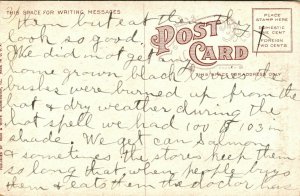 THIS SPACE FOR WRITING MESSAGES
POST CARD
PLACE STAMP HERE
DOMESTIC ONE CENT
FOREIGN TWO CENTS
THIS SPACE FOR ADDRESS ONLY
eat them they
look so good.
She did not get any
home grown black
bushes were burned up from the
hot & dry weather during the
hot spell we had 100 & 103 in
shade. We get can Salmon
sometimes the stores keep them
so long that when people buys
them & eats them the doctor